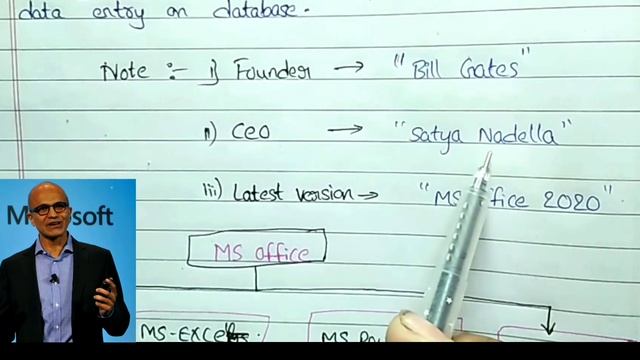 data entry on database.
Note :- i) Founder → "Bill Gates"
ii) CEO → "Satya Nadella"
iii) Latest version → "MS Office 2020"
Microsoft
MS office
MS-EXCEL.
MS